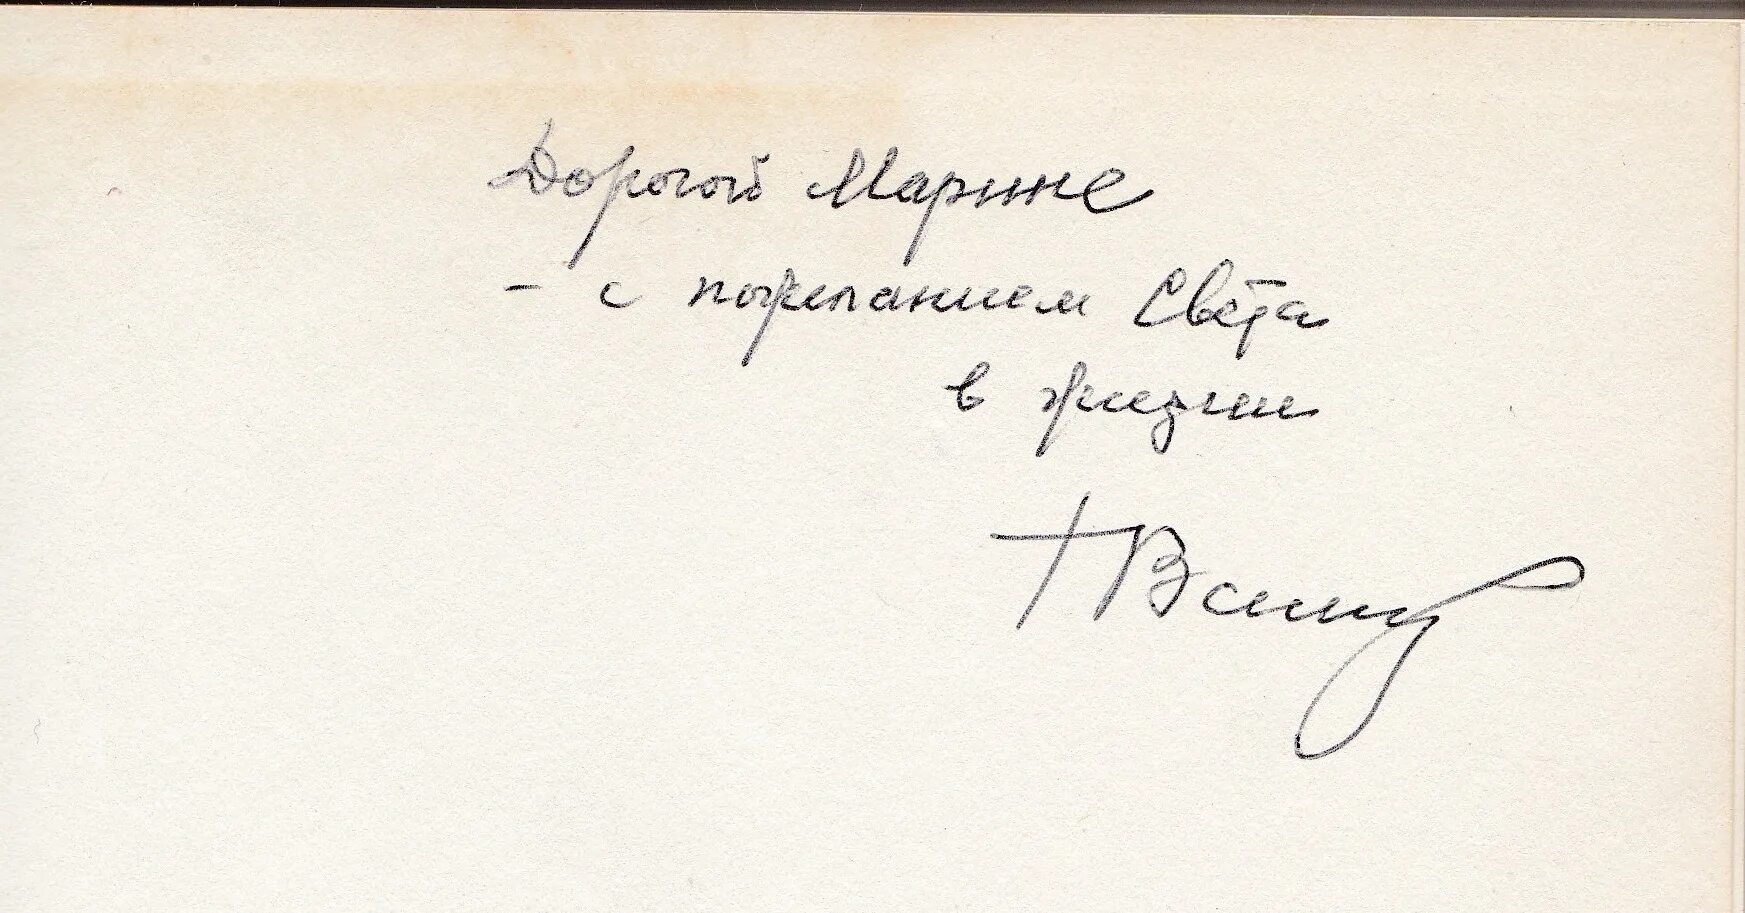 Дорогой Марине
- с пожеланием Света
в жизни